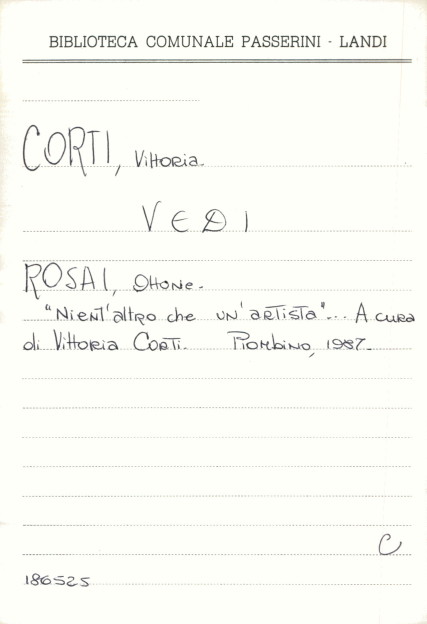 BIBLIOTECA COMUNALE PASSERINI - LANDI
CORTI, Vittoria.
VEDI
ROSAI, Ottone.
"Nient'altro che un'artista"... A cura
di Vittoria Corti. Piombino, 1987.
C
186525